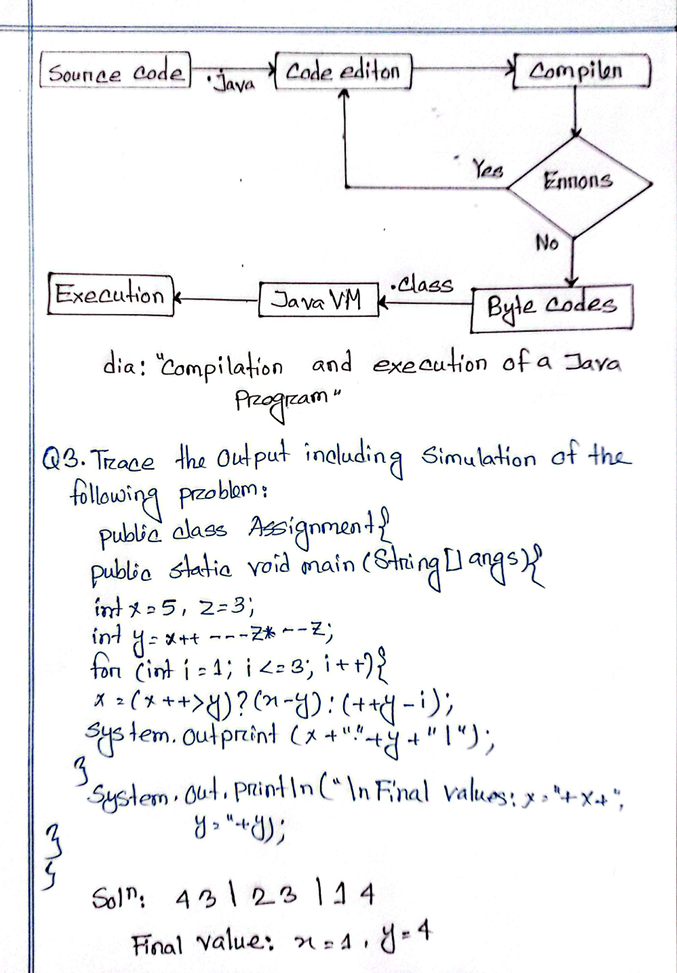 Source code
.java
Code editor
Compiler
Yes
Errors
No
Execution
Java VM
.class
Byte codes
dia: "Compilation and execution of a Java
Program"
Q3. Trace the Output including Simulation of the
following problem:
public class Assignment{
public static void main (String[] args){
int x=5, z=3;
int y= x++ ---z* --z;
for (int i=1; i<=3; i++){
x=(x++>y)?(x-y):(++y-i);
System.out.print (x+":"+y+"|");
}
System.out.println("\nFinal values: x="+x+",
y="+y);
}
}
Solⁿ: 43|23|14
Final value: x=1, y=4